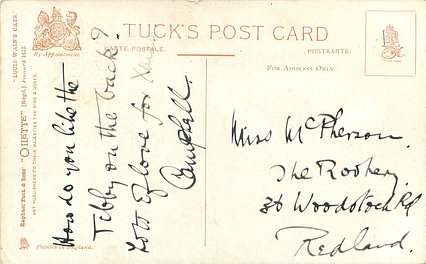 "LOUIS WAIN'S CATS."
Raphael Tuck & Sons' "OILETTE" [Regd.]
ART PUBLISHERS TO THEIR MAJESTIES THE KING & QUEEN.
By Appointment.
TUCK'S POST CARD
CARTE POSTALE.
POSTKARTE.
FOR ADDRESS ONLY.
How do you like the
Tibby on the back?
Lots of love for
Campbell.
Miss McPherson
The Rookery
36 Woodstock Rd
Redland.
Printed in England.